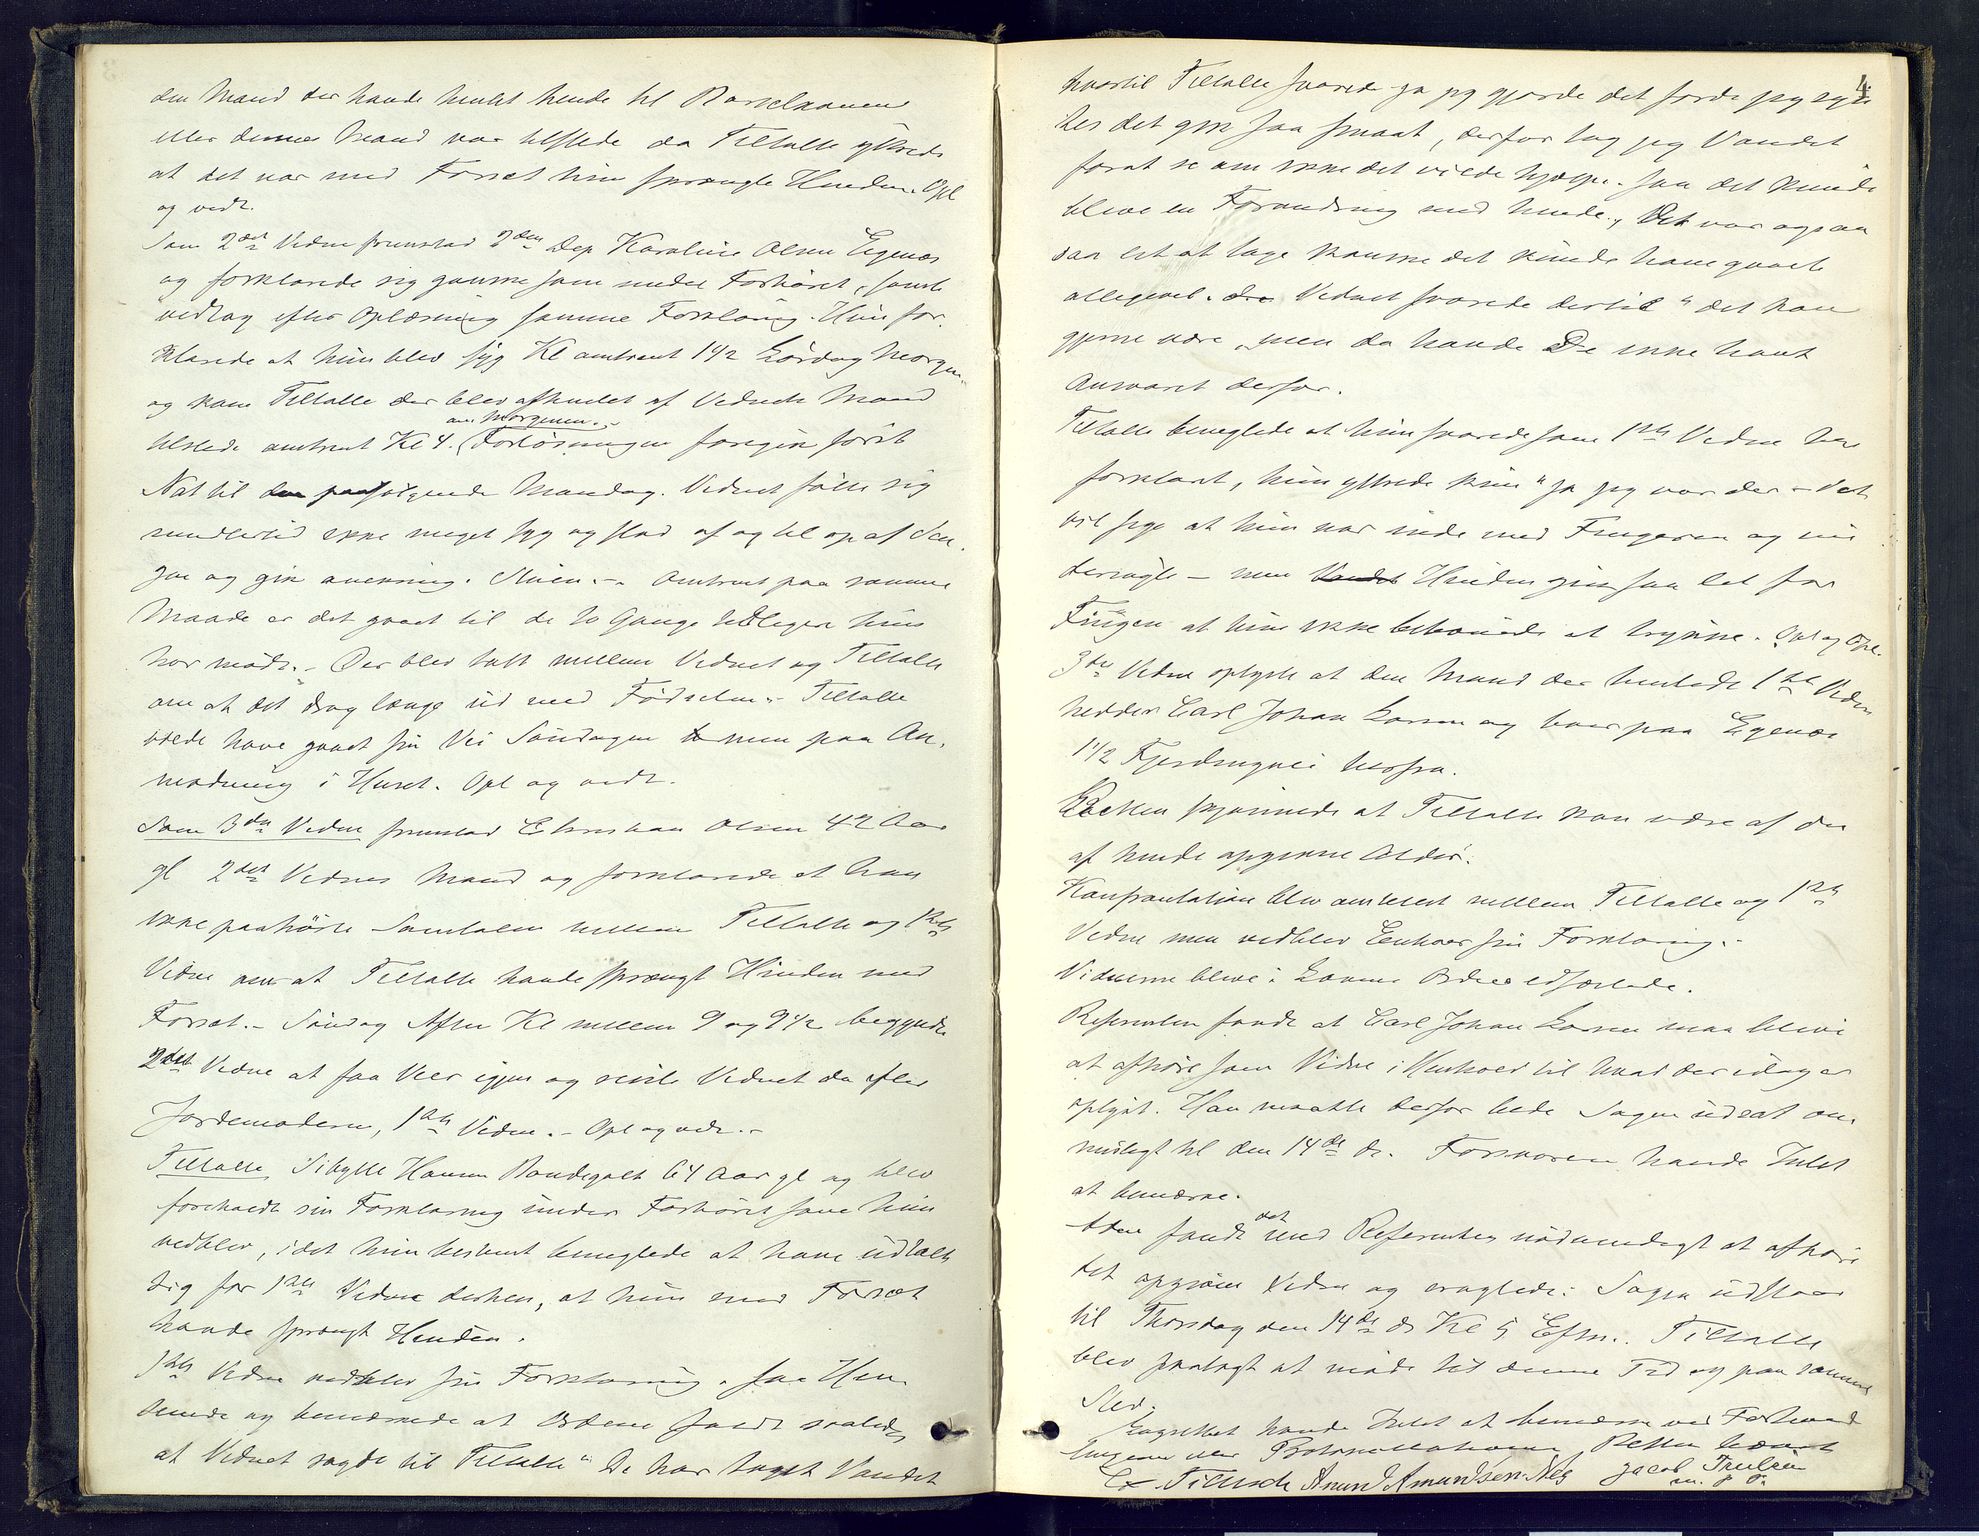 den Mand der havde hentet hende til Barselkonen
eller dennes Mand var tilstede da Tiltalte yttrede
at det var med Forsæt hun sprængte Hinden. Opl
og vedt.
Som 2det Vidne fremstod 2den Dep Karoline Olsen Egenæs
og forklarede sig ganske som under Forhøret, samt
vedtog efter Oplæsning samme Forklaring. Hun for-
klarede at hun blev syg Kl omtrent 1 1/2 Lördag Morgen
og kom Tiltalte der blev afhentet af Vidnets Mand
om Morgenen.
tilstede omtrent Kl 4. Forlösningen foregik först
Nat til den paafölgende Mandag. Vidnet fölte sig
imidlertid ikke meget syg og stod af og til op af Sen-
gen og gik omkring i Stuen. - Omtrent paa samme
Maade er det gaaet til de 10 Gange tidligere hun
har född. - Der blev talt mellem Vidnet og Tiltalte
om at det drog længe ud med Födselen. - Tiltalte
vilde have gaaet sin Vei Söndagen men paa An-
modning i Huset. Opl og vedt.
Som 3die Vidne fremstod Christian Olsen 42 Aar
gl 2det Vidnes Mand og forklarede at han
ikke paahörte Samtalen mellem Tiltalte og 1ste
Vidne om at Tiltalte havde sprængt Hinden med
Forsæt. - Söndag Aften Kl mellem 9 og 9 1/2 begyndte
2det Vidne at faa Veer igjen og sendte Vidnet da efter
Jordemoderen, 1ste Vidne. - Opl og vedt. -
Tiltalte Sibylle Hansen Bondegott 64 Aar gl og blev
foreholdt sin Forklaring under Forhöret som hun
vedblev, idet hun bestemt benegtede at have udtalt
sig for 1ste Vidne derhen, at hun med Forsæt
havde sprængt Hinden.
1ste Vidne vedblev sin Forklaring i saa Hen-
seende og bemærkede at Ordene faldt saaledes
at Vidnet sagde til Tiltalte "De har taget Vandet
4
hvortil Tiltalte svarede ja jeg gjorde det fordi jeg syn-
tes det gik saa smaat, derfor tog jeg Vandet
forat se om ikke det vilde hjælpe. saa det kunde
blive en Forandring med hende, Det var ogsaa
saa let at tage kanske det kunde have gaaet
alligevel. Vidnet svarede dertil "det kan
gjerne være, men da havde De ikke havt
Ansvaret derfor.
Tiltalte benegtede at hun svarede som 1ste Vidne har
forklaret, hun yttrede kun "ja jeg var der - det
vil sige at hun var inde med Fingeren og un-
dersögte - men Hinden gik saa let for
Fingen at hun ikke behövede at trykke. Opl og Opl.
3die Vidne oplyste at den Mand der hentede 1ste Vidne
hedder Carl Johan Larsen og boer paa Egenæs
1 1/2 Fjerdingvei herfra.
Retten skjönnede at Tiltalte kan være af den
af hende opgivne Alder.
Konfrontation blev anstillet mellem Tiltalte og 1ste
Vidne men vedblev Enhver sin Forklaring. -
Vidnerne bleve i Lovens Orden edfæstede.
Referenten fandt at Carl Johan Larsen maa blive
at afhöre som Vidne i Henhold til hvad der idag er
oplyst. Han maatte derfor bede Sagen udsat om
muligt til den 14de ds. Forsvaren havde Intet
at bemærke.
Den fandt det med Referenten nödvendigt at afhöre
det opgivne Vidne og eragtede: Sagen udstaar
til Thorsdag den 14de ds Kl 5 Eftm. Tiltalte
blev paalagt at möde til denne Tid og paa samme
Sted.
Lagrettet havde Intet at bemærke ved Forhand-
lingerne eller Protokollationen. Retten hævet
Tillisch Anund Amundsen Nes Jacob Truelsen
m. f. P.